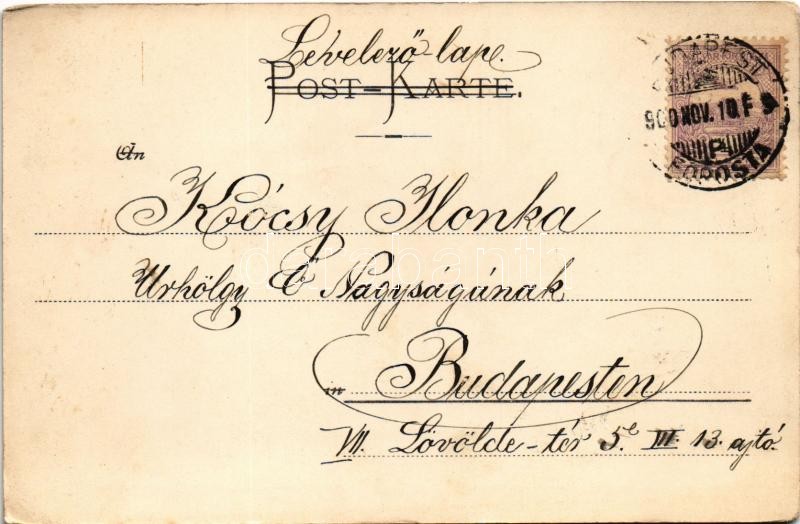 Levelező-lap.
POST-KARTE.
BUDAPEST
900 NOV. 10. F 9
P
FŐPOSTA
An
Kócsy Ilonka
Urhölgy Ő Nagyságának
in Budapesten
VII. Lövölde-tér 5. III. 13. ajtó.